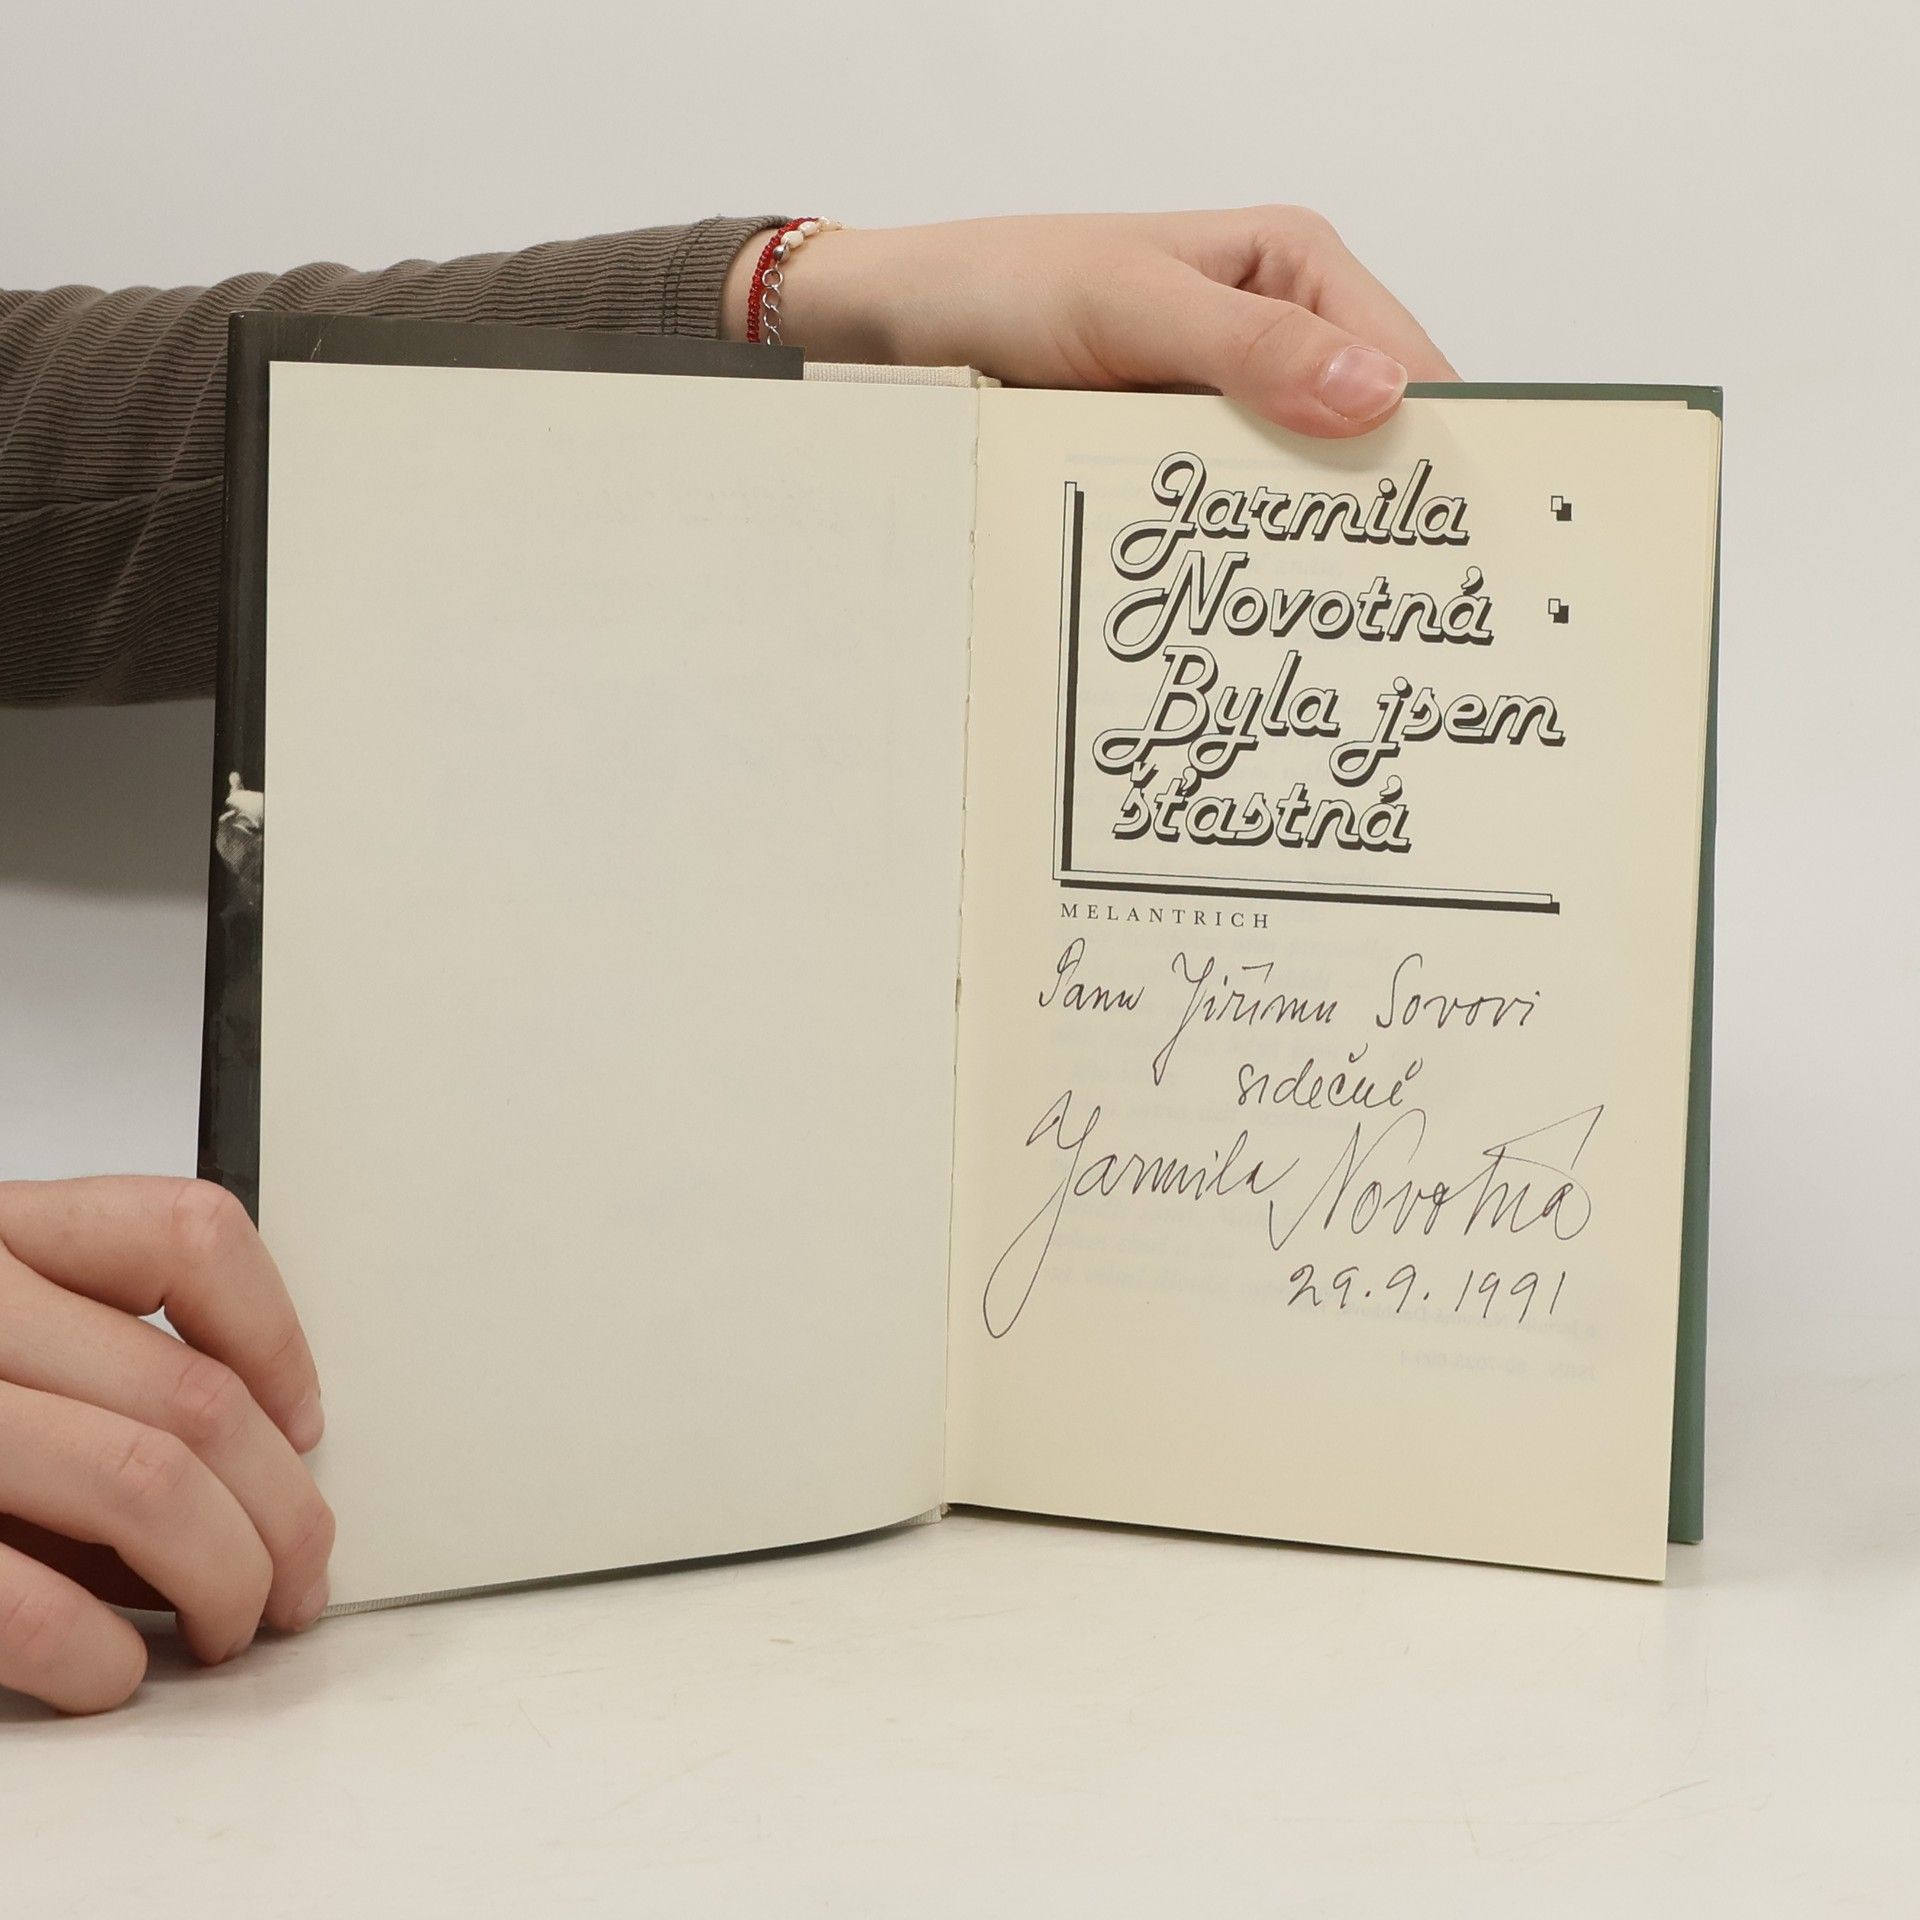 Jarmila
Novotná
Byla jsem
šťastná
MELANTRICH
Panu Jiřímu Sovovi
srdečně
Jarmila Novotná
29.9.1991